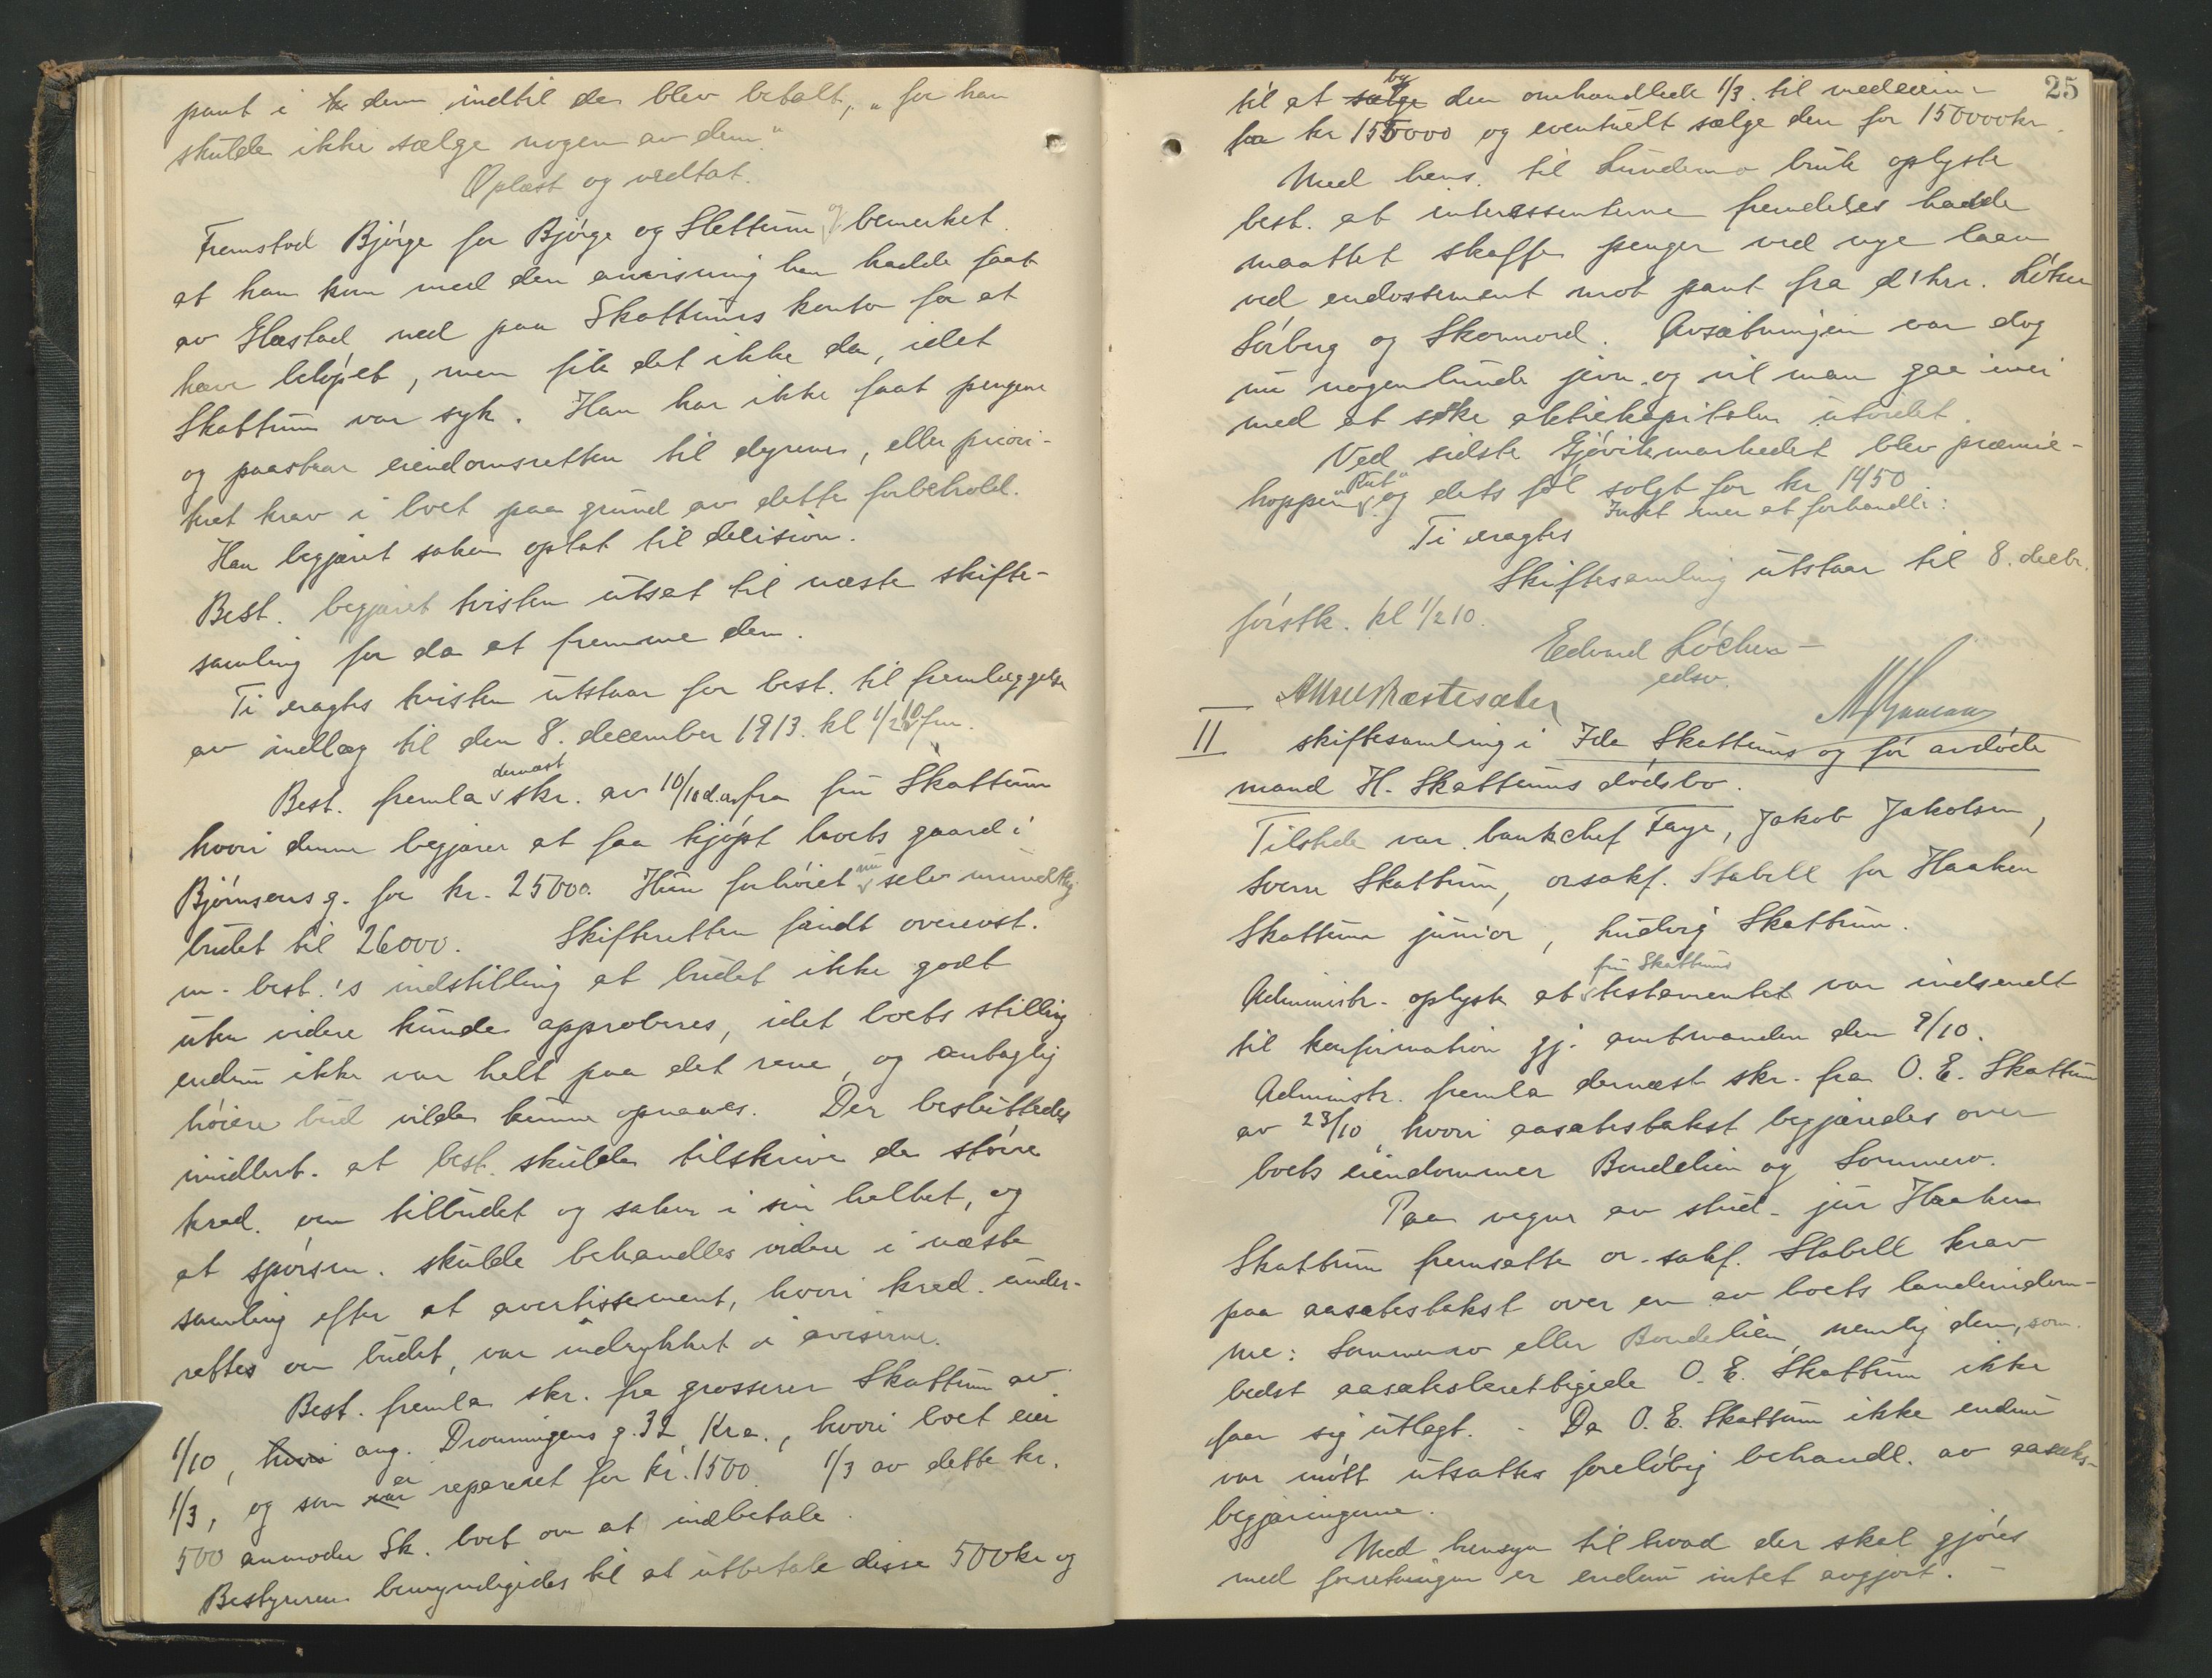 pant i dem indtil de blev betalt, „for han
skulde ikke sælge nogen av dem."
Oplæst og vedtat.
Fremstod Bjørge for Bjørge og Slettum og bemerket
at han kom med den anvisning han hadde faat
av Glæstad ned paa Skattums kontor for at
hæve beløpet, men fik det ikke da, idet
Skattum var syk. Han har ikke faat pengene
og paastaar eiendomsretten til dyrene, eller priori-
tert krav i boet paa grund av dette forbehold.
Han begjæret saken optat til decision.
Best. begjæret tvisten utsat til næste skifte-
samling for da at fremme den.
Ti eragtes tvisten utstaar for best. til fremlæggelse
av indlæg til den 8. december 1913. kl 1/2 10 fm.
Best. fremla dernæst skr. av 10/10 d.a. fra fru Skattum
hvori denne begjærer at faa kjøpt boets gaard i
Bjørnsens g. for kr. 25000. Hun forhøiet nu selv mundtlig
budet til 26000. Skifteretten fandt overenst.
m. best.'s indstilling at budet ikke godt
uten videre kunde approberes, idet boets stilling
endnu ikke var helt paa det rene, og antaglig
høiere bud vilde kunne opnaaes. Der besluttedes
imidlert. at best. skulde tilskrive de større
kred. om tilbudet og saken i sin helhet, og
at spørsm. skulde behandles videre i næste
samling efter at avertissement, hvori kred. under-
rettes om budet, var indrykket i aviserne.
Best. fremla skr. fra grosserer Skattum av
1/10, hvori ang. Dronningens g. 32 Kra., hvori boet eier
1/3, og som var er reparert for kr. 1500 1/3 av dette kr.
500 anmoder Sk. boet om at indbetale.
Bestyreren bemyndigedes til at utbetale disse 500 kr og
25
til at sælge by den omhandlede 1/3 til medeiern
for kr 155000 og eventuelt sælge den for 150000 kr.
Med hens. til Lundemo bruk oplyste
best. at interessenterne fremdeles hadde
maattet skaffe penger ved nye laan
ved endossement mot pant fra d'hrr. Løken
Sørberg og Skonnord. Avsætningen var dog
nu nogenlunde jevn og vil man gaa ivei
med at søke aktiekapitalen utvidet.
Ved sidste Gjøvikmarkedet blev præmie-
hoppen „Rut" og dets føl solgt for kr 1450
Intet mer at forhandle:
Ti eragtes
Skiftesamling utstaar til 8. decbr.
førstk. kl 1/2 10.
Edvard Løchen
edsv.
II skiftesamling i Ida Skattums og før avdøde
mand H. Skattums dødsbo.
Tilstede var bankchef Faye, Jakob Jakobsen,
Sverre Skattum, orsakf. Stabell for Haaken
Skattum junior, Ludvig Skattum.
Administr. oplyste at fru Skattums testamentet var indsendt
til konfirmation gj. amtmanden den 9/10.
Administr. fremla dernæst skr. fra O. E. Skattum
av 23/10, hvori aasætestakst begjæredes over
boets eiendommer Bondelien og Sommero.
Paa vegne av stud. jur Haaken
Skattum fremsatte or.sakf. Stabell krav
paa aasætestakst over en av boets landeiendom-
me: Sommero eller Bondelien, nemlig den, som
bedst aasætesberettigede O. E. Skattum ikke
faar sig utlagt. - Da O. E. Skattum ikke endnu
var møtt utsattes foreløbig behandl. av aasætes-
begjæringerne.
Med hensyn til hvad der skal gjøres
med forretningen er endnu intet avgjort. -